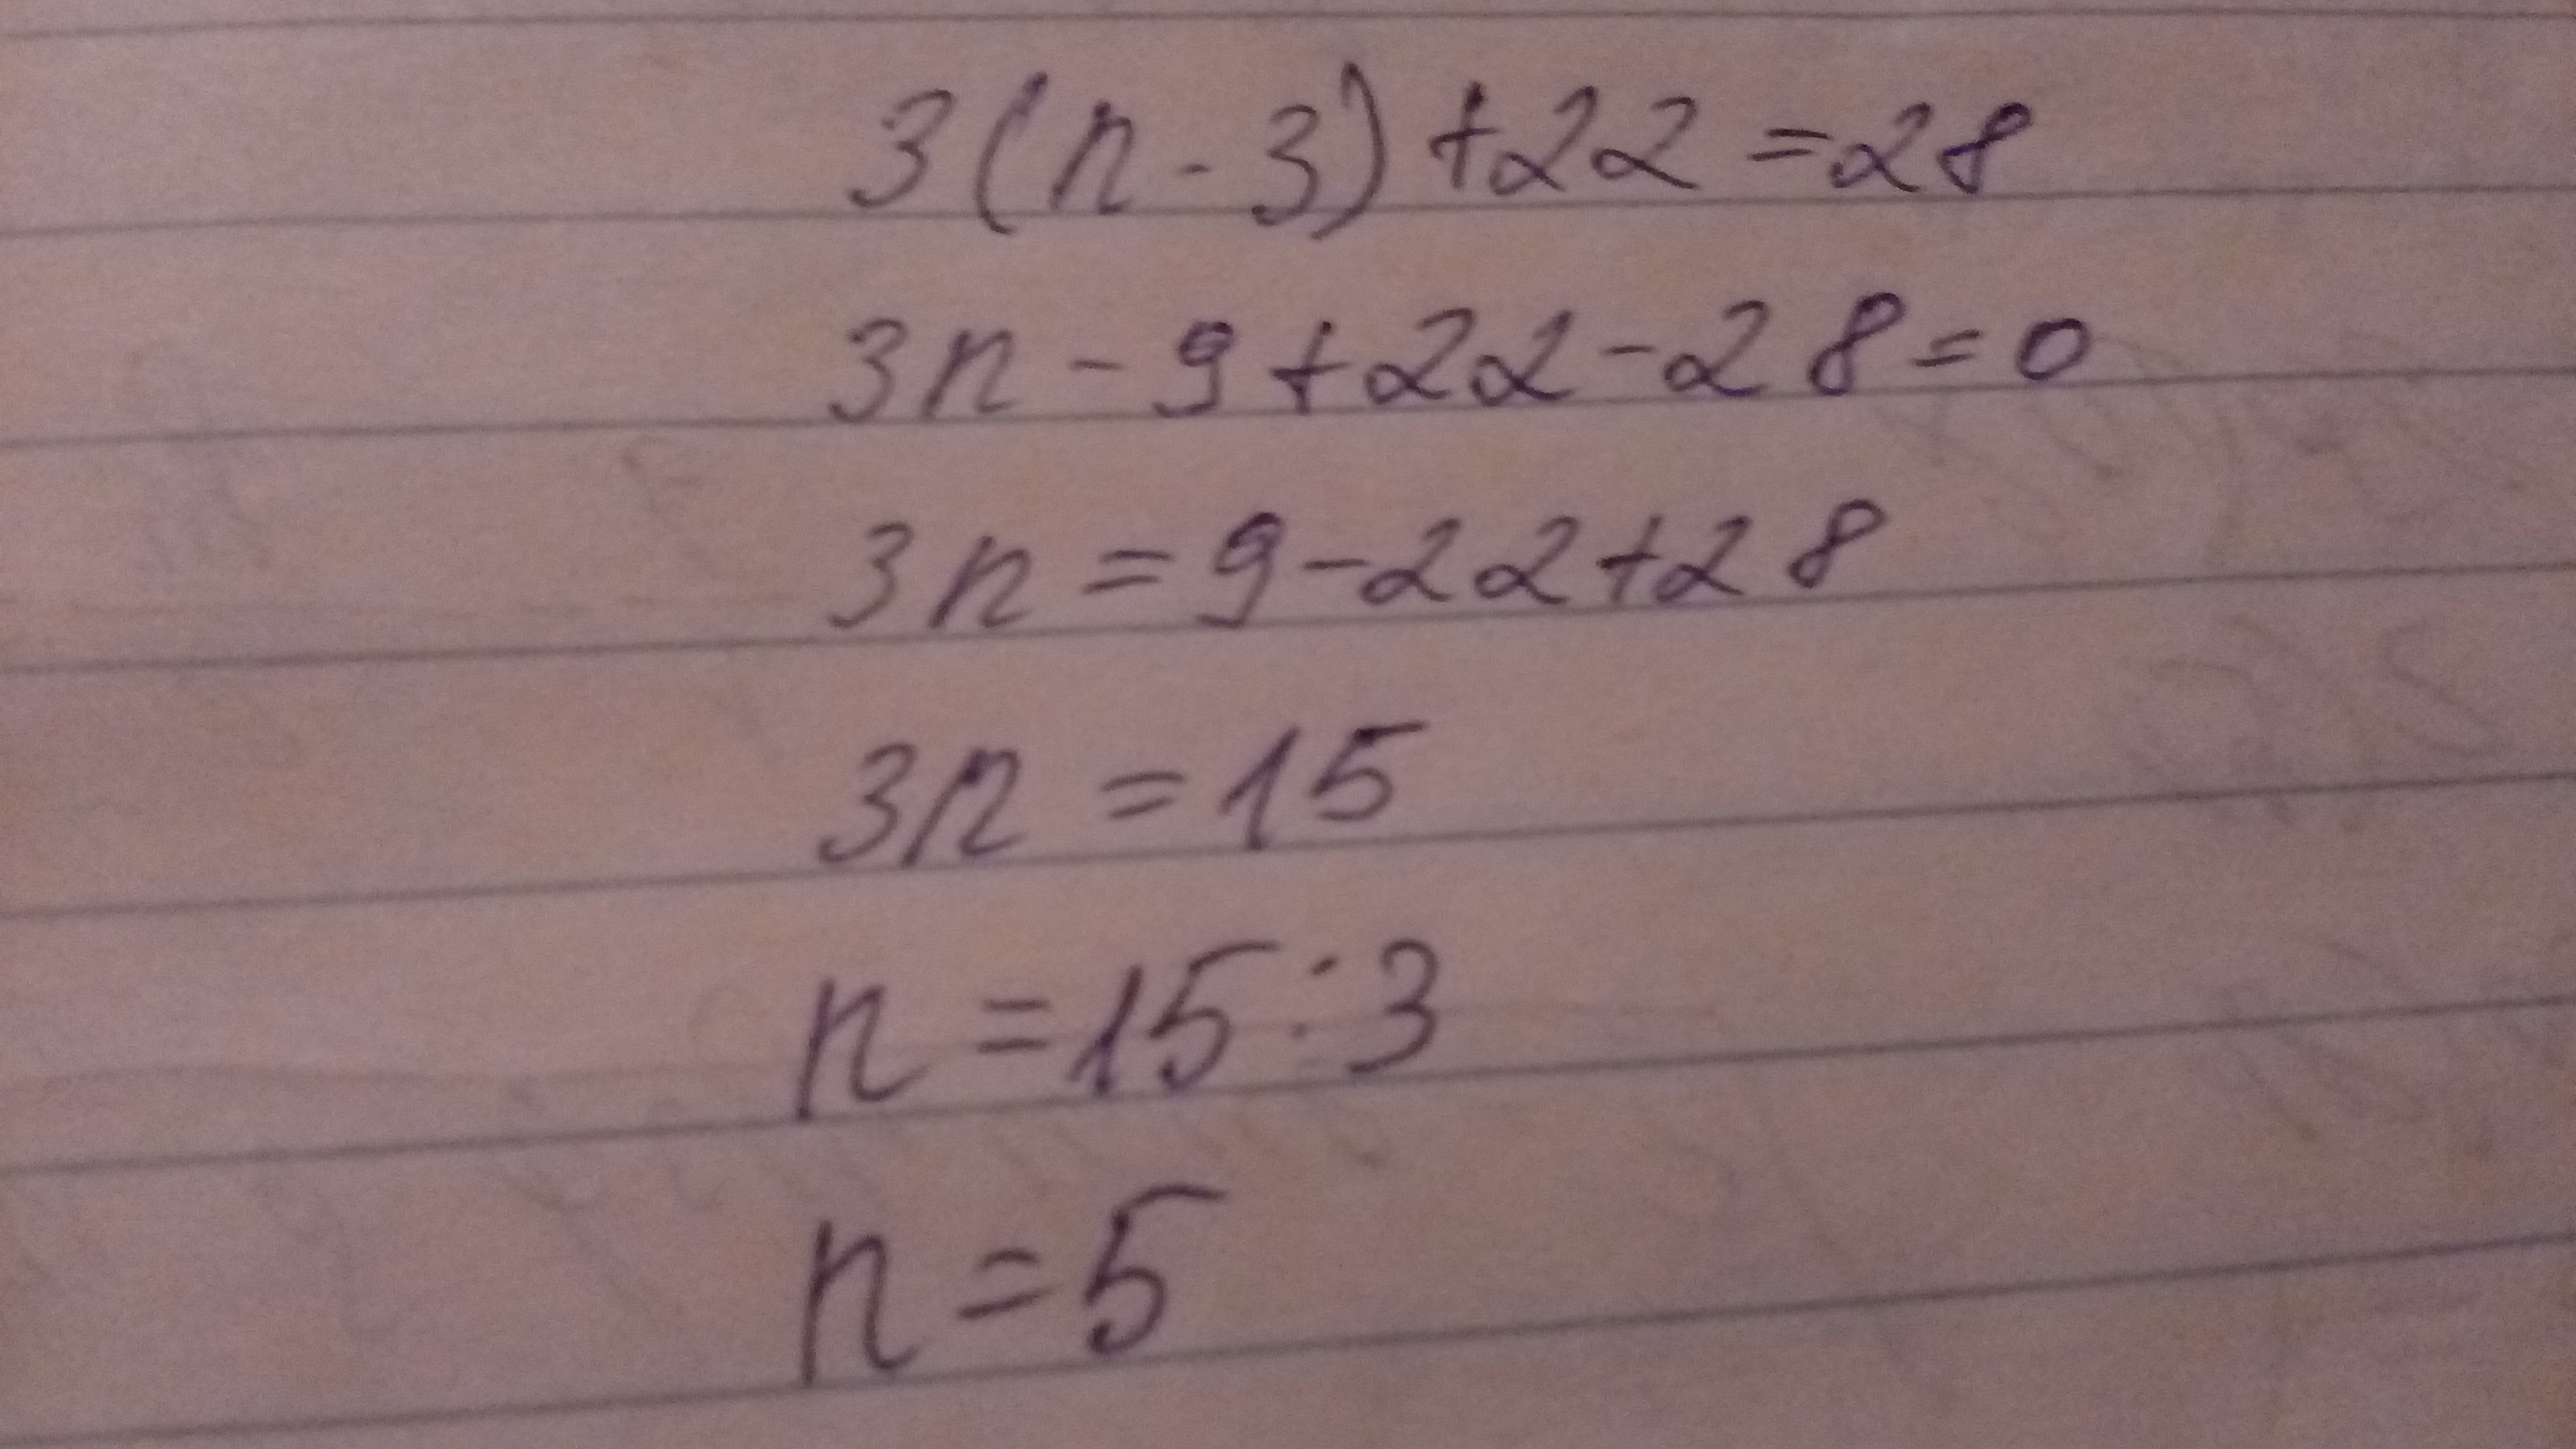 3(n-3)+22=28
3n-9+22-28=0
3n=9-22+28
3n=15
n=15:3
n=5